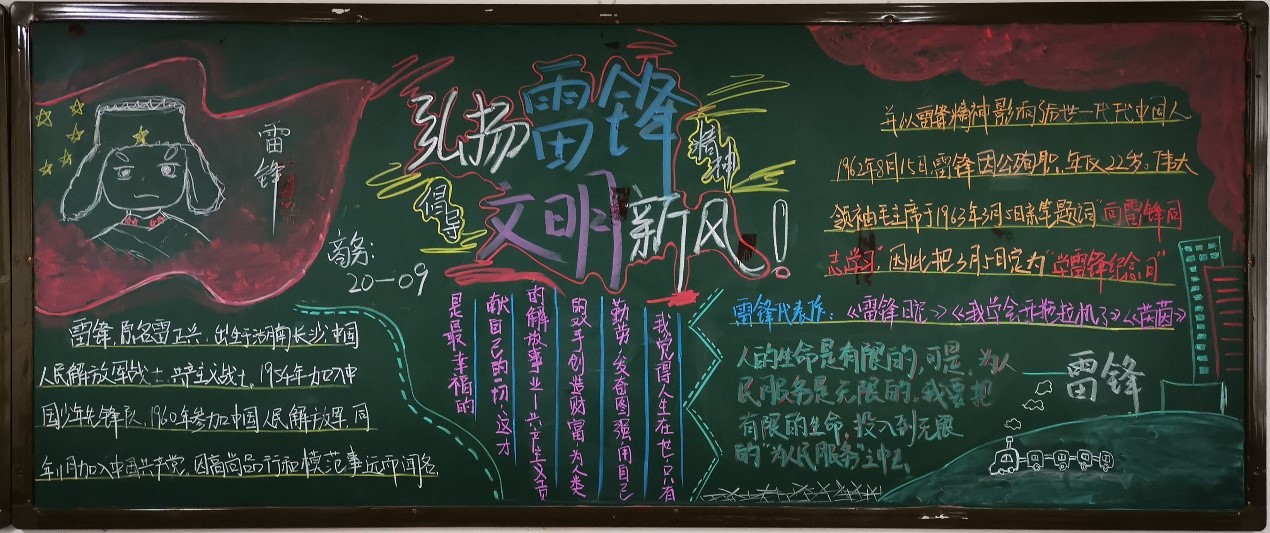 雷锋
弘扬雷锋精神
倡导文明新风!
商务:
20-09
雷锋,原名雷正兴,出生于湖南长沙,中国
人民解放军战士,共产主义战士,1954年加入中
国少年先锋队,1960年参加中国人民解放军,同
年11月加入中国共产党,因高尚品行和模范事远而闻名
我觉得人生在世,只有
勤劳,发奋图强,用自己
的双手创造财富,为人类
的解放事业—共产主义贡
献自己的一切,这才
是最幸福的
并以雷锋精神影响后世一代代中国人
1962年8月15日,雷锋因公殉职,年仅22岁。伟大
领袖毛主席于1963年3月5日亲笔题词"向雷锋同
志学习"因此把3月5日定为"学雷锋纪念日"
雷锋代表作:《雷锋日记》《我学会开拖拉机了》《茵茵》
人的生命是有限的,可是,为人
民服务是无限的,我要把
有限的生命,投入到无限
的"为人民服务"之中去
——雷锋